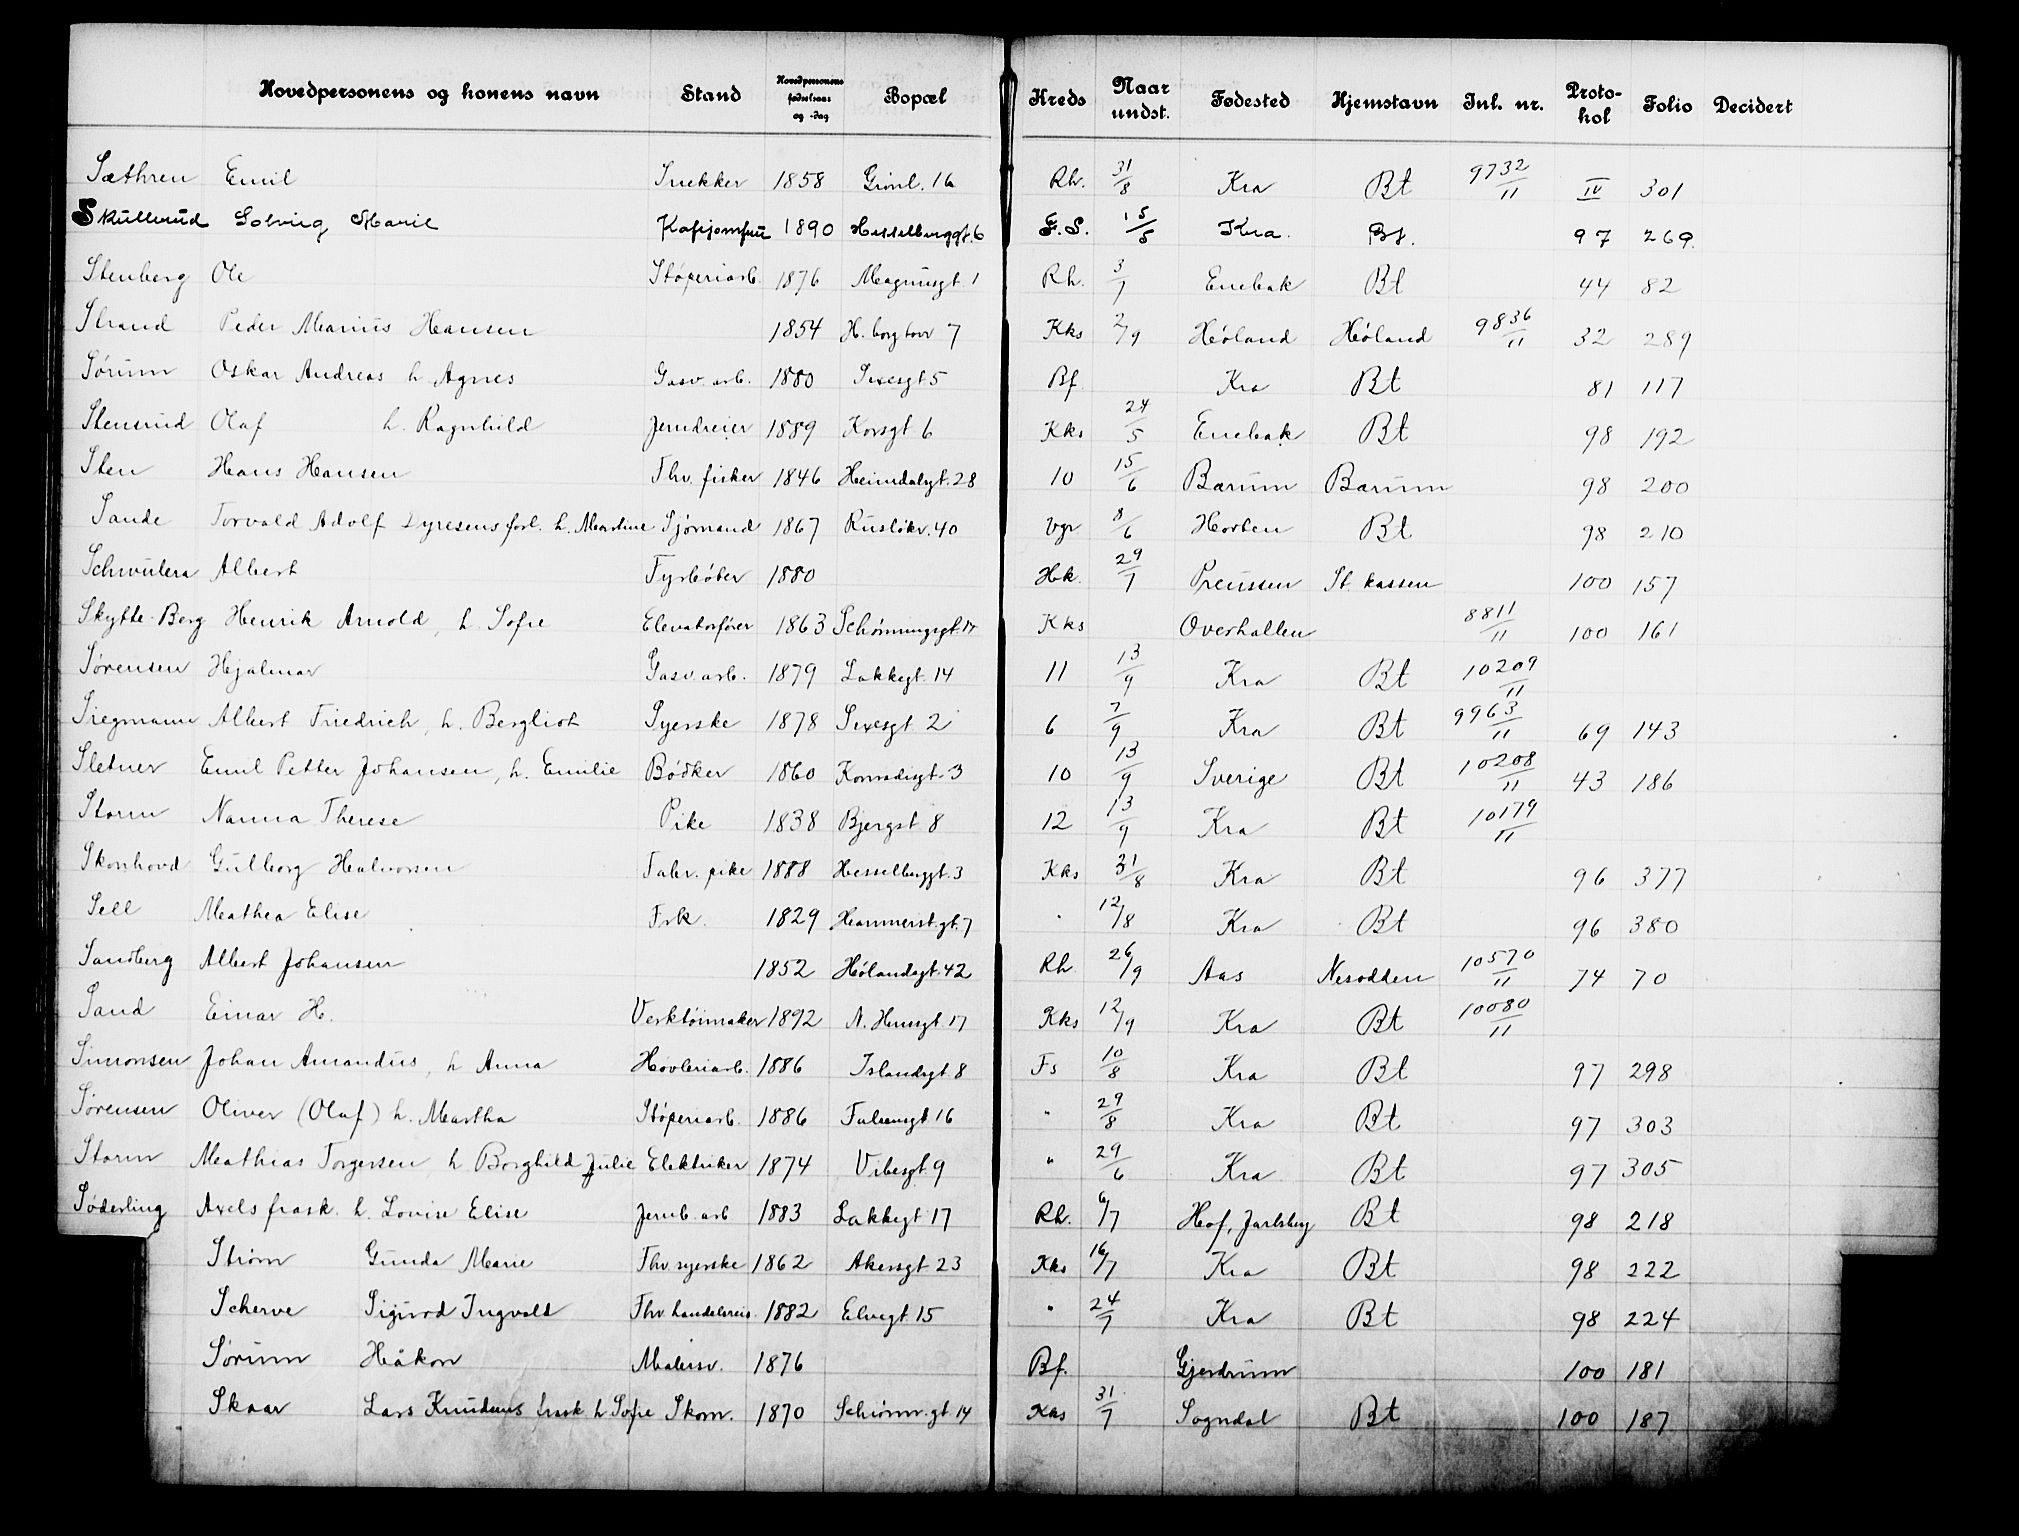 Hovedpersonens og konens navn Stand Hovedpersonens fødselsaar og -dag Bopæl Kreds Naar undst. Fødested Hjemstavn Inl. nr. Protokol Folio Decidert
Sæthren Emil Snekker 1858 Grønl. 16 Rh. 31/8 Kra Bt 9732/11 IV 301
Skullerud Solveig Marie Kafejomfru 1890 Hesselberggt. 6 G.S. 15/5 Kra. Bt. 97 269
Stenberg Ole Støperiarb. 1876 Magnusgt. 1 Rh. 3/7 Enebak Bt 44 82
Strand Peder Marius Hansen 1854 H. borg torv 7 Kks 2/9 Høland Høland 9836/11 32 289
Sørum Oskar Andreas h. Agnes Gasv. arb. 1880 Sexesgt 5 Bf Kra Bt 81 117
Stensrud Olaf h. Ragnhild Jerndreier 1889 Korsgt 6 Kks 24/5 Enebak Bt 98 192
Sten Hans Hansen Fhv. fisker 1846 Heimdalsgt. 28 10 15/6 Bærum Bærum 98 200
Sande Torvald Adolf Dyresens forl. h. Martine Sjømand 1867 Rusløkv. 40 Vgr 8/6 Horten Bt 98 210
Schwulera Albert Fyrbøter 1880 Hk. 29/7 Preussen St. kassen 100 157
Skytte-Berg Henrik Arnold, h. Sofie Elevatorfører 1863 Schønningsgt. 14 Kks Overhallen 8811/11 100 161
Sørensen Hjalmar Gasv. arb. 1879 Lakkegt. 14 11 13/9 Kra Bt 10209/11
Siegmann Albert Friedrich, h. Bergliot Syerske 1878 Sexesgt 2 6 7/9 Kra Bt 9963/11 69 143
Sletner Emil Petter Johansen, h. Emilie Bødker 1860 Konradisgt. 3 10 13/9 Sverige Bt 10208/11 43 186
Storm Nanna Therese Pike 1838 Bjergst 8 12 13/9 Kra Bt 10179/11
Skonhovd Gulborg Halvorsen Fabr. pike 1888 Hesselberggt. 3 Kks 31/8 Kra Bt 96 377
Sell Mathea Elise Frk. 1829 Hammerst.gt. 7 " 12/8 Kra Bt 96 380
Sandberg Albert Johansen 1852 Hølandsgt. 42 Rh. 26/9 Aas Nesodden 10570/11 74 70
Sand Einar H. Verktøimaker 1892 N. Hemsgt 17 Kks 12/9 Kra Bt 10080/11
Simonsen Johan Amandus, h Anna Høvleriarb. 1886 Islandsgt. 8 Fs 10/8 Kra Bt 97 298
Sørensen Oliver (Olaf) h. Martha Støperiarb. 1886 Falsensgt 16 " 29/8 Kra Bt 97 303
Storm Mathias Torgersen, h. Borghild Julie Elektriker 1874 Vibesgt 9 " 29/6 Kra Bt 97 305
Søderling Axels frask. h. Lovise Elise Jernb. arb 1883 Lakkegt 17 Rh. 6/7 Hof, Jarlsberg Bt 98 218
Strøm Gunda Marie Fhv. syerske 1862 Akersgt. 23 Kks 16/7 Kra Bt 98 222
Scherve Sigurd Ingvald Fhv. handelsreis. 1882 Elvegt 15 " 24/7 Kra Bt 98 224
Sørum Håkon Malersv. 1876 Bf. Gjerdrum 100 181
Skaar Lars Knudsens frask h. Sofie Skom. 1870 Schiønn. gt 14 Kks 31/7 Sogndal Bt 100 187